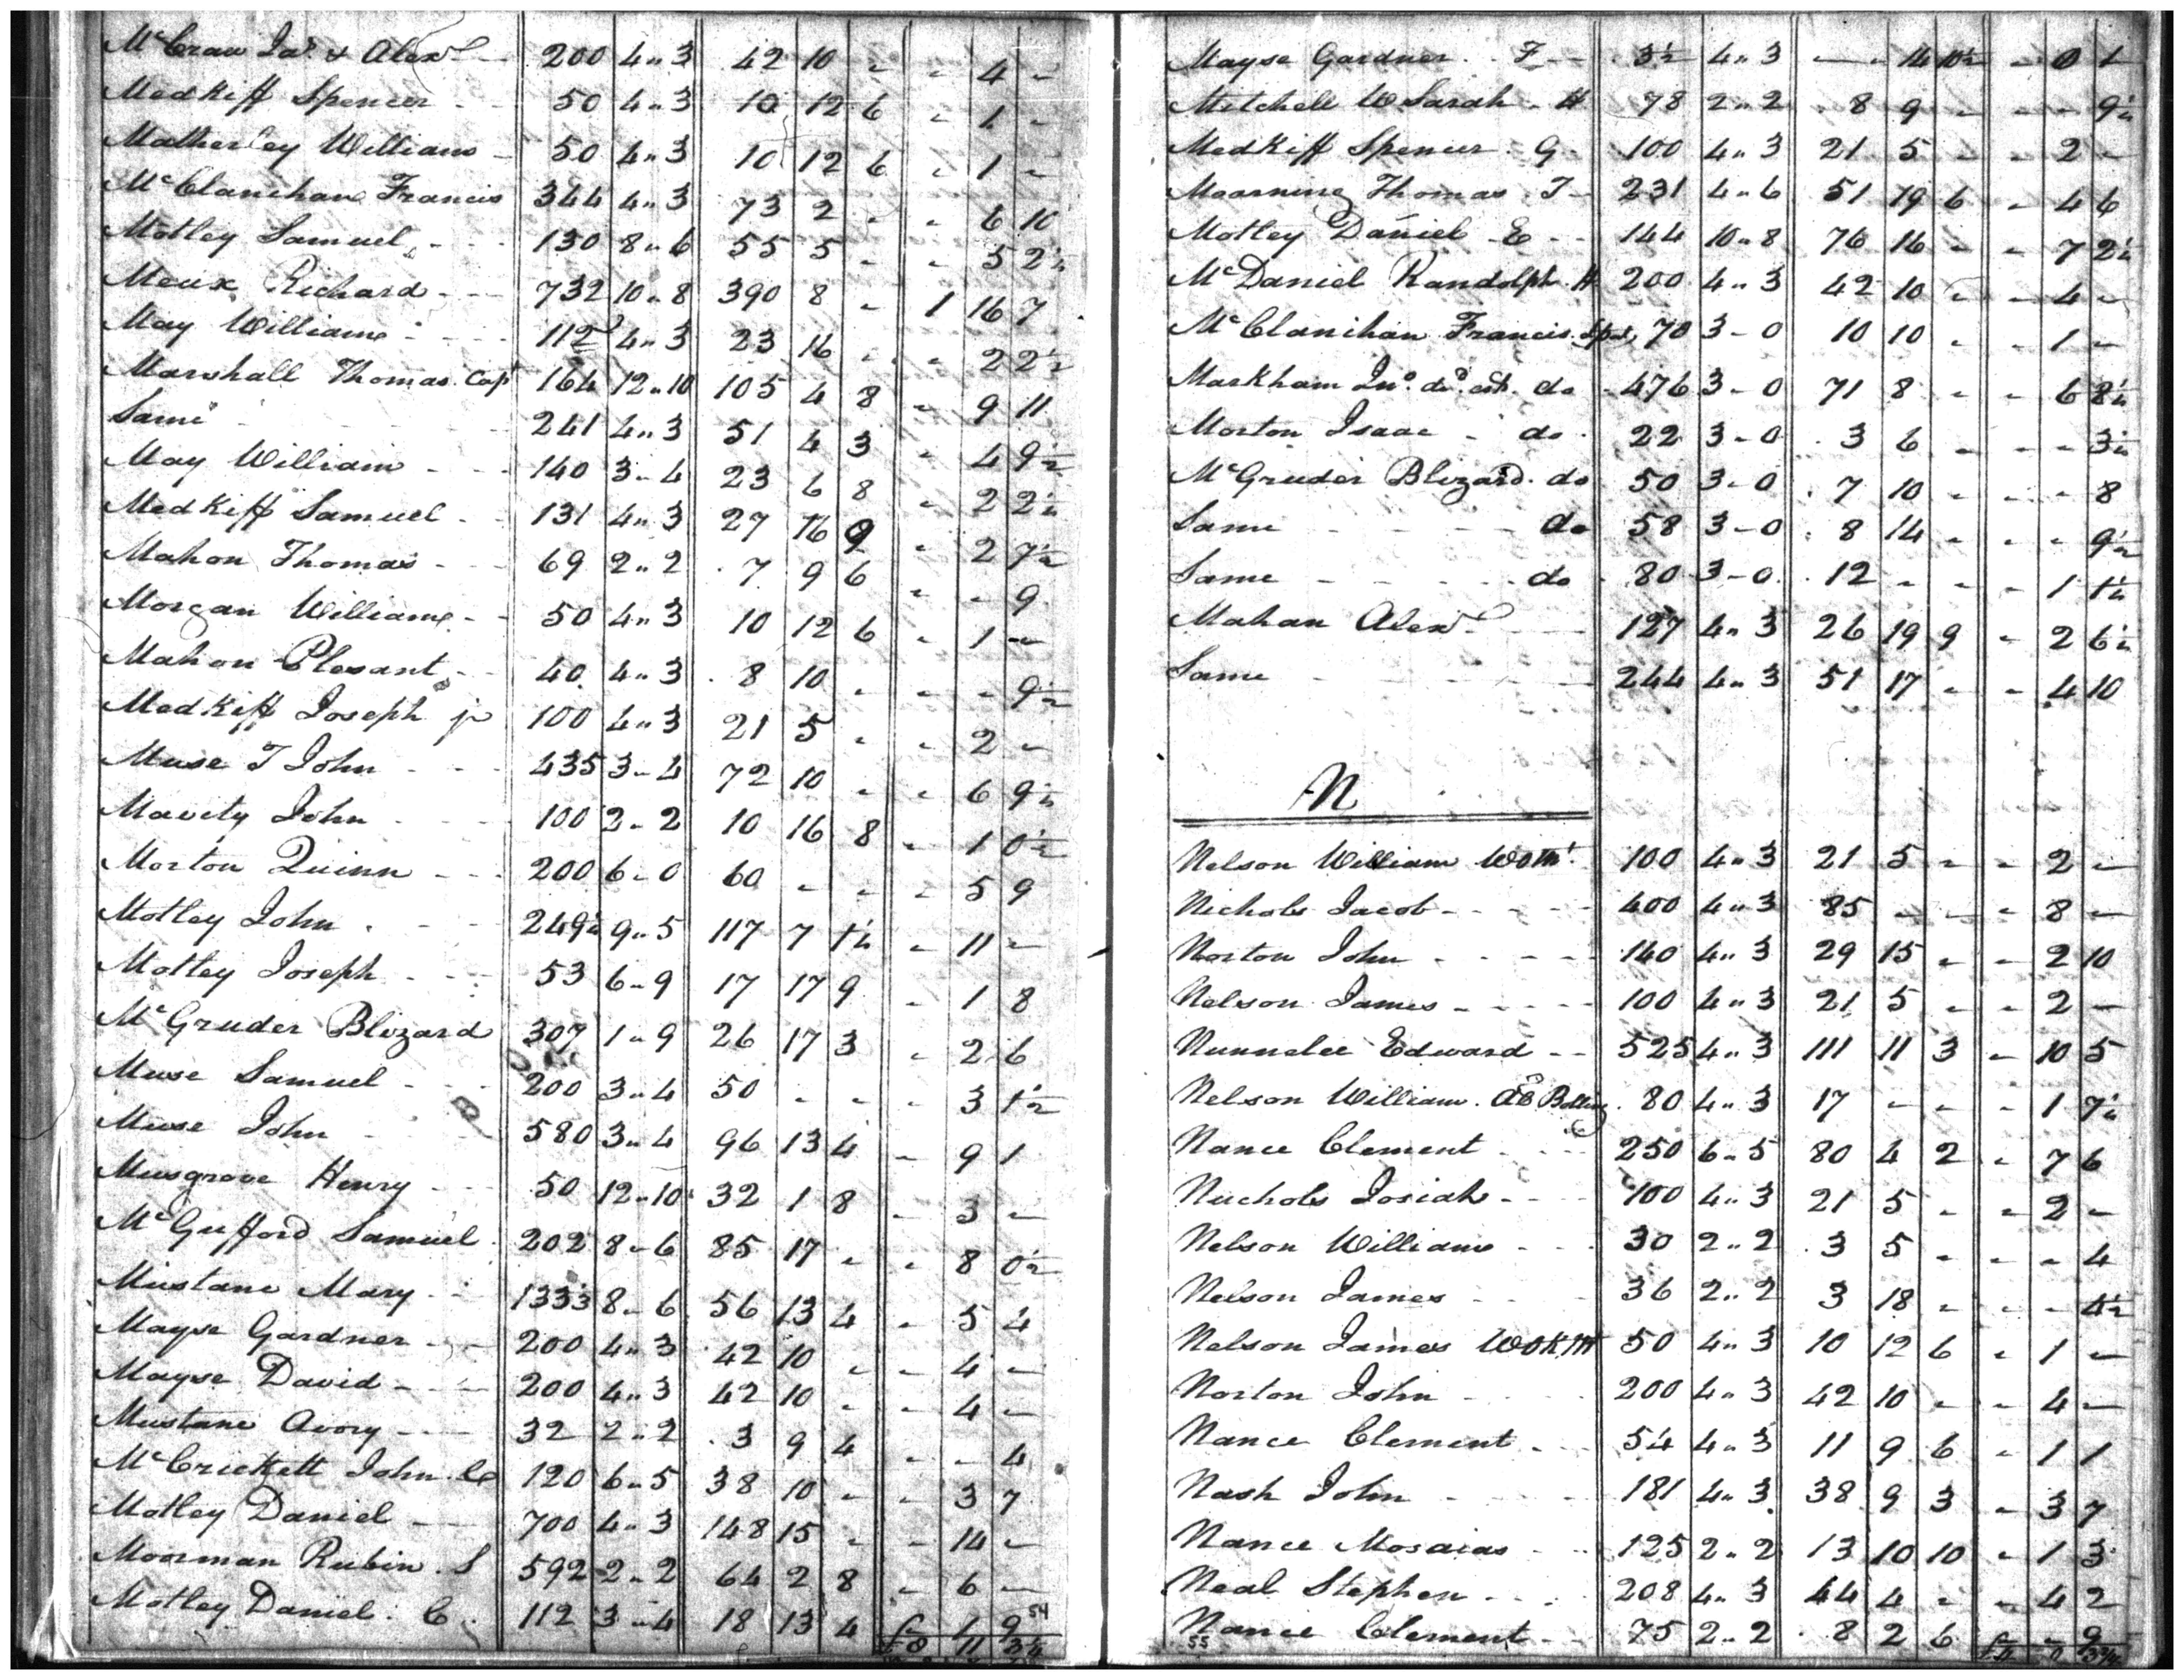 McCraw Jas & Alexr 200 4"3 42 10 - - 4 -
Medkiff Spencer 50 4"3 10 12 6 - 1 -
Matherley William 50 4"3 10 12 6 - 1 -
McClanihan Francis 344 4"3 73 2 - - 6 10
Motley Samuel 130 8"6 55 5 - - 5 2½
Meux Richard 732 10"8 390 8 - 1 16 7
May William 112 4"3 23 16 - - 2 2½
Marshall Thomas Capt 164 12"10 105 4 8 - 9 11
Same 241 4"3 51 4 3 - 4 9½
May William 140 3"4 23 6 8 - 2 2½
Medkiff Samuel 131 4"3 27 16 9 - 2 7½
Mahon Thomas 69 2"2 7 9 6 - - 9
Morgan William 50 4"3 10 12 6 - 1 -
Mahon Plesant 40 4"3 8 10 - - - 9½
Medkiff Joseph jr 100 4"3 21 5 - - 2 -
Muse T John 435 3"4 72 10 - - 6 9½
Mavity John 100 2"2 10 16 8 - 1 0½
Morton Quinn 200 6"0 60 - - - 5 9
Motley John 249½ 9"5 117 7 1½ - 11 -
Motley Joseph 53 6"9 17 17 9 - 1 8
McGruder Blizard 307 1"9 26 17 3 - 2 6
Muse Samuel 200 3"4 50 - - - 3 1½
Muse John 580 3"4 96 13 4 - 9 1
Musgrove Henry 50 12"10 32 1 8 - 3 -
McGufford Samuel 202 8"6 85 17 - - 8 0½
Mustane Mary 1333 8"6 56 13 4 - 5 4
Mayse Gardner 200 4"3 42 10 - - 4 -
Mayse David 200 4"3 42 10 - - 4 -
Mustane Avory 32 2"2 3 9 4 - - 4
McCrickett John 120 6"5 38 10 - - 3 7
Motley Daniel 700 4"3 148 15 - - 14 -
Moorman Rubin S 592 2"2 64 2 8 - 6 -
Motley Daniel C 112 3"4 18 13 4 - 1 9
54
Mayse Gardner F 3½ 4"3 - 14 10½ - 0 1
Mitchell W Sarah H 78 2"2 8 9 - - - 9½
Medkiff Spencer G 100 4"3 21 5 - - 2 -
Moarning Thomas T 231 4"6 51 19 6 - 4 6
Motley Daniel E 144 10"8 76 16 - - 7 2½
McDaniel Randolph H 200 4"3 42 10 - - 4 -
McClanihan Francis 70 3-0 10 10 - - 1 -
Markham Jno. decd. est. do 476 3-0 71 8 - - 6 8½
Morton Isaac do 22 3-0 3 6 - - - 3½
McGruder Blizard do 50 3-0 7 10 - - - 8
Same do 58 3-0 8 14 - - - 9½
Same do 80 3-0 12 - - - 1 1½
Mahan Alexr 127 4"3 26 19 9 - 2 6½
Same 244 4"3 51 17 - - 4 10
N
Nelson William 100 4"3 21 5 - - 2 -
Nichols Jacob 400 4"3 85 - - - 8 -
Norton John 140 4"3 29 15 - - 2 10
Nelson James 100 4"3 21 5 - - 2 -
Nunnelee Edward 525 4"3 111 11 3 - 10 5
Nelson William 80 4"3 17 - - - 1 7½
Nance Clement 250 6"5 80 4 2 - 7 6
Nuchols Josiah 100 4"3 21 5 - - 2 -
Nelson William 30 2"2 3 5 - - - 4
Nelson James 36 2"2 3 18 - - - 4½
Nelson James 50 4"3 10 12 6 - 1 -
Norton John 200 4"3 42 10 - - 4 -
Nance Clement 54 4"3 11 9 6 - 1 1
Nash John 181 4"3 38 9 3 - 3 7
Nance Mosaias 125 2"2 13 10 10 - 1 3
Neal Stephen 208 4"3 44 4 - - 4 2
Nance Clement 75 2"2 8 2 6 - - 9
55